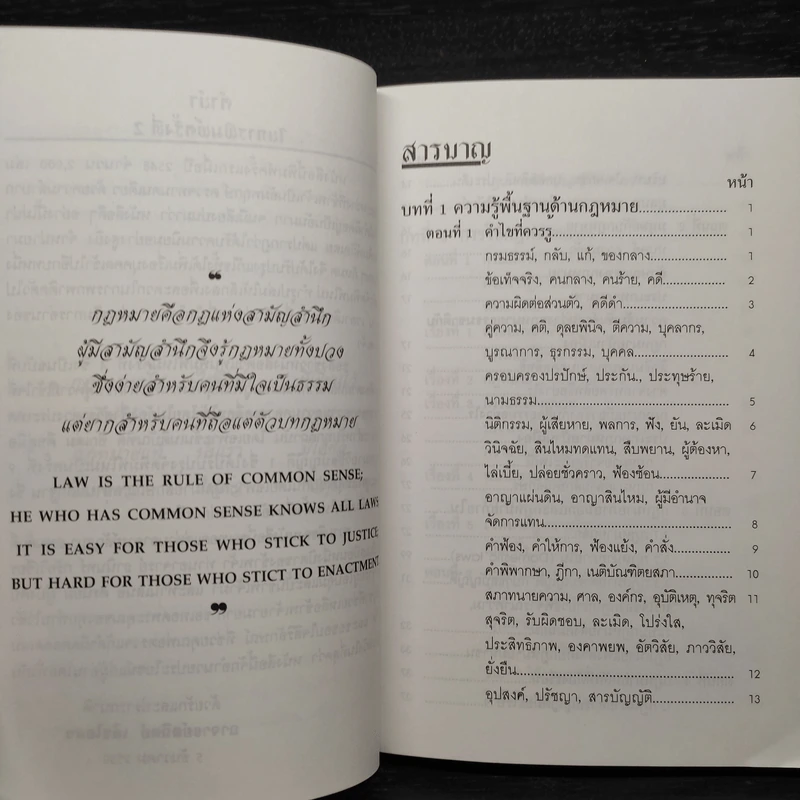 ❝
กฎหมายคือกฎแห่งสามัญสำนึก
ผู้มีสามัญสำนึกจึงรู้กฎหมายทั้งปวง
ซึ่งง่ายสำหรับคนที่มีใจเป็นธรรม
แต่ยากสำหรับคนที่ถือแต่ตัวบทกฎหมาย
LAW IS THE RULE OF COMMON SENSE;
HE WHO HAS COMMON SENSE KNOWS ALL LAWS
IT IS EASY FOR THOSE WHO STICK TO JUSTICE
BUT HARD FOR THOSE WHO STICT TO ENACTMENT
❞
สารบาญ
หน้า
บทที่ 1 ความรู้พื้นฐานด้านกฎหมาย........................ 1
ตอนที่ 1 คำไขที่ควรรู้........................ 1
กรมธรรม์, กลับ, แก้, ของกลาง........................ 1
ข้อเท็จจริง, คนกลาง, คนร้าย, คดี........................ 2
ความผิดต่อส่วนตัว, คดีดำ........................ 3
คู่ความ, คติ, ดุลยพินิจ, ตีความ, บุคลากร,
บูรณาการ, ธุรกรรม, บุคคล........................ 4
ครอบครองปรปักษ์, ประกัน., ประทุษร้าย,
นามธรรม........................ 5
นิติกรรม, ผู้เสียหาย, พลการ, ฟัง, ยัน, ละเมิด 6
วินิจฉัย, สินไหมทดแทน, สืบพยาน, ผู้ต้องหา,
ไล่เบี้ย, ปล่อยชั่วคราว, ฟ้องซ้อน........................ 7
อาญาแผ่นดิน, อาญาสินไหม, ผู้มีอำนาจ
จัดการแทน........................ 8
คำฟ้อง, คำให้การ, ฟ้องแย้ง, คำสั่ง........................ 9
คำพิพากษา, ฎีกา, เนติบัณฑิตยสภา........................ 10
สภาทนายความ, ศาล, องค์กร, อุบัติเหตุ, ทุจริต 11
สุจริต, รับผิดชอบ, ละเมิด, โปร่งใส,
ประสิทธิภาพ, องคาพยพ, อัตวิสัย, ภาววิสัย,
ยั่งยืน........................ 12
อุปสงค์, ปรัชญา, สารบัญญัติ........................ 13